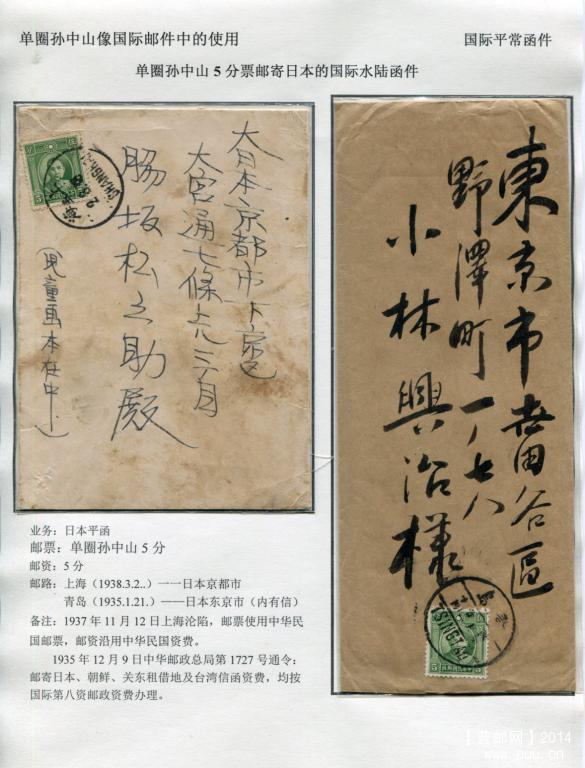 单圈孙中山像国际邮件中的使用
国际平常函件
单圈孙中山 5 分票邮寄日本的国际水陆函件
大日本京都市下京区
大宮通七條上ル三丁目
脇坂松之助殿
(児童画本在中)
SHANGHAI
5
東京市世田谷區
野澤町一ノ七八
小林興治様
TSINGTAO
5
业务：日本平函
邮票：单圈孙中山 5 分
邮资：5 分
邮路：上海（1938.3.2..）一一日本京都市
青岛（1935.1.21.）——日本东京市（内有信）
备注：1937 年 11 月 12 日上海沦陷，邮票使用中华民
国邮票，邮资沿用中华民国资费。
1935 年 12 月 9 日中华邮政总局第 1727 号通令：
邮寄日本、朝鲜、关东租借地及台湾信函资费，均按
国际第八资邮政资费办理。
2014